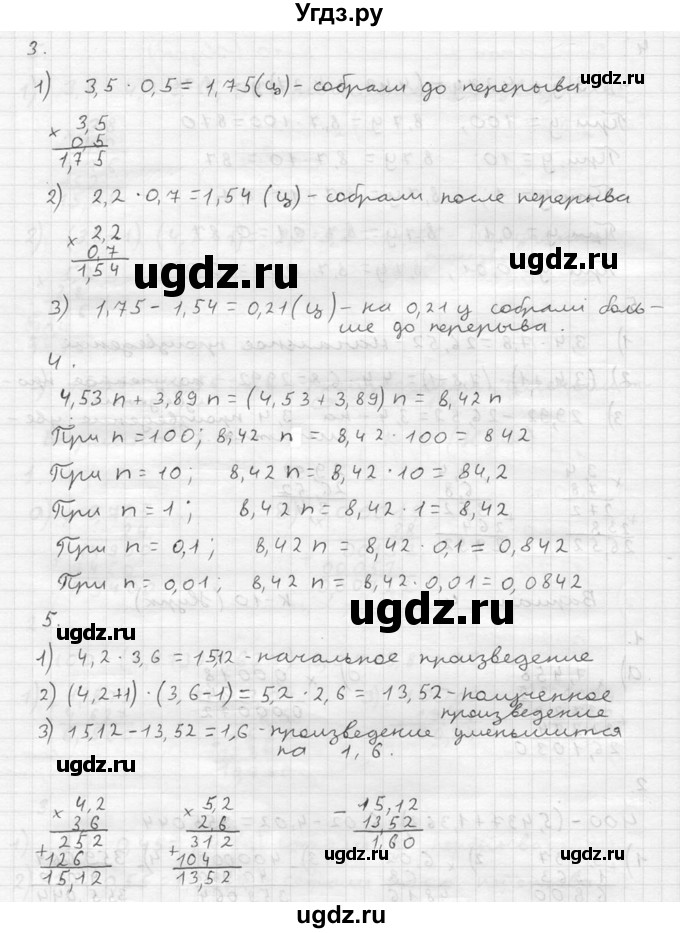 Угдз.ру
3.
1) 3,5 · 0,5 = 1,75 (ц) - собрали до перерыва
ugdz.ru
× 3,5
0,5
1,75
ugdz.ru
2) 2,2 · 0,7 = 1,54 (ц) - собрали после перерыва
× 2,2
0,7
1,54
ugdz.ru
ugdz.ru
3) 1,75 - 1,54 = 0,21 (ц) - на 0,21 ц собрали боль-
ше до перерыва.
4.
4,53 n + 3,89 n = (4,53 + 3,89) n = 8,42 n
При n = 100; 8,42 n = 8,42 · 100 = 842
При n = 10; 8,42 n = 8,42 · 10 = 84,2
При n = 1; 8,42 n = 8,42 · 1 = 8,42
При n = 0,1; 8,42 n = 8,42 · 0,1 = 0,842
При n = 0,01; 8,42 n = 8,42 · 0,01 = 0,0842
ugdz.ru
5.
ugdz.ru
1) 4,2 · 3,6 = 15,12 - начальное произведение
2) (4,2+1) · (3,6-1) = 5,2 · 2,6 = 13,52 - полученное
произведение
3) 15,12 - 13,52 = 1,6 - произведение уменьшится
на 1,6.
ugdz.ru
× 4,2
3,6
+ 252
126
15,12
× 5,2
2,6
+ 312
104
13,52
- 15,12
13,52
1,60
ugdz.ru
ugdz.ru
ugdz.ru